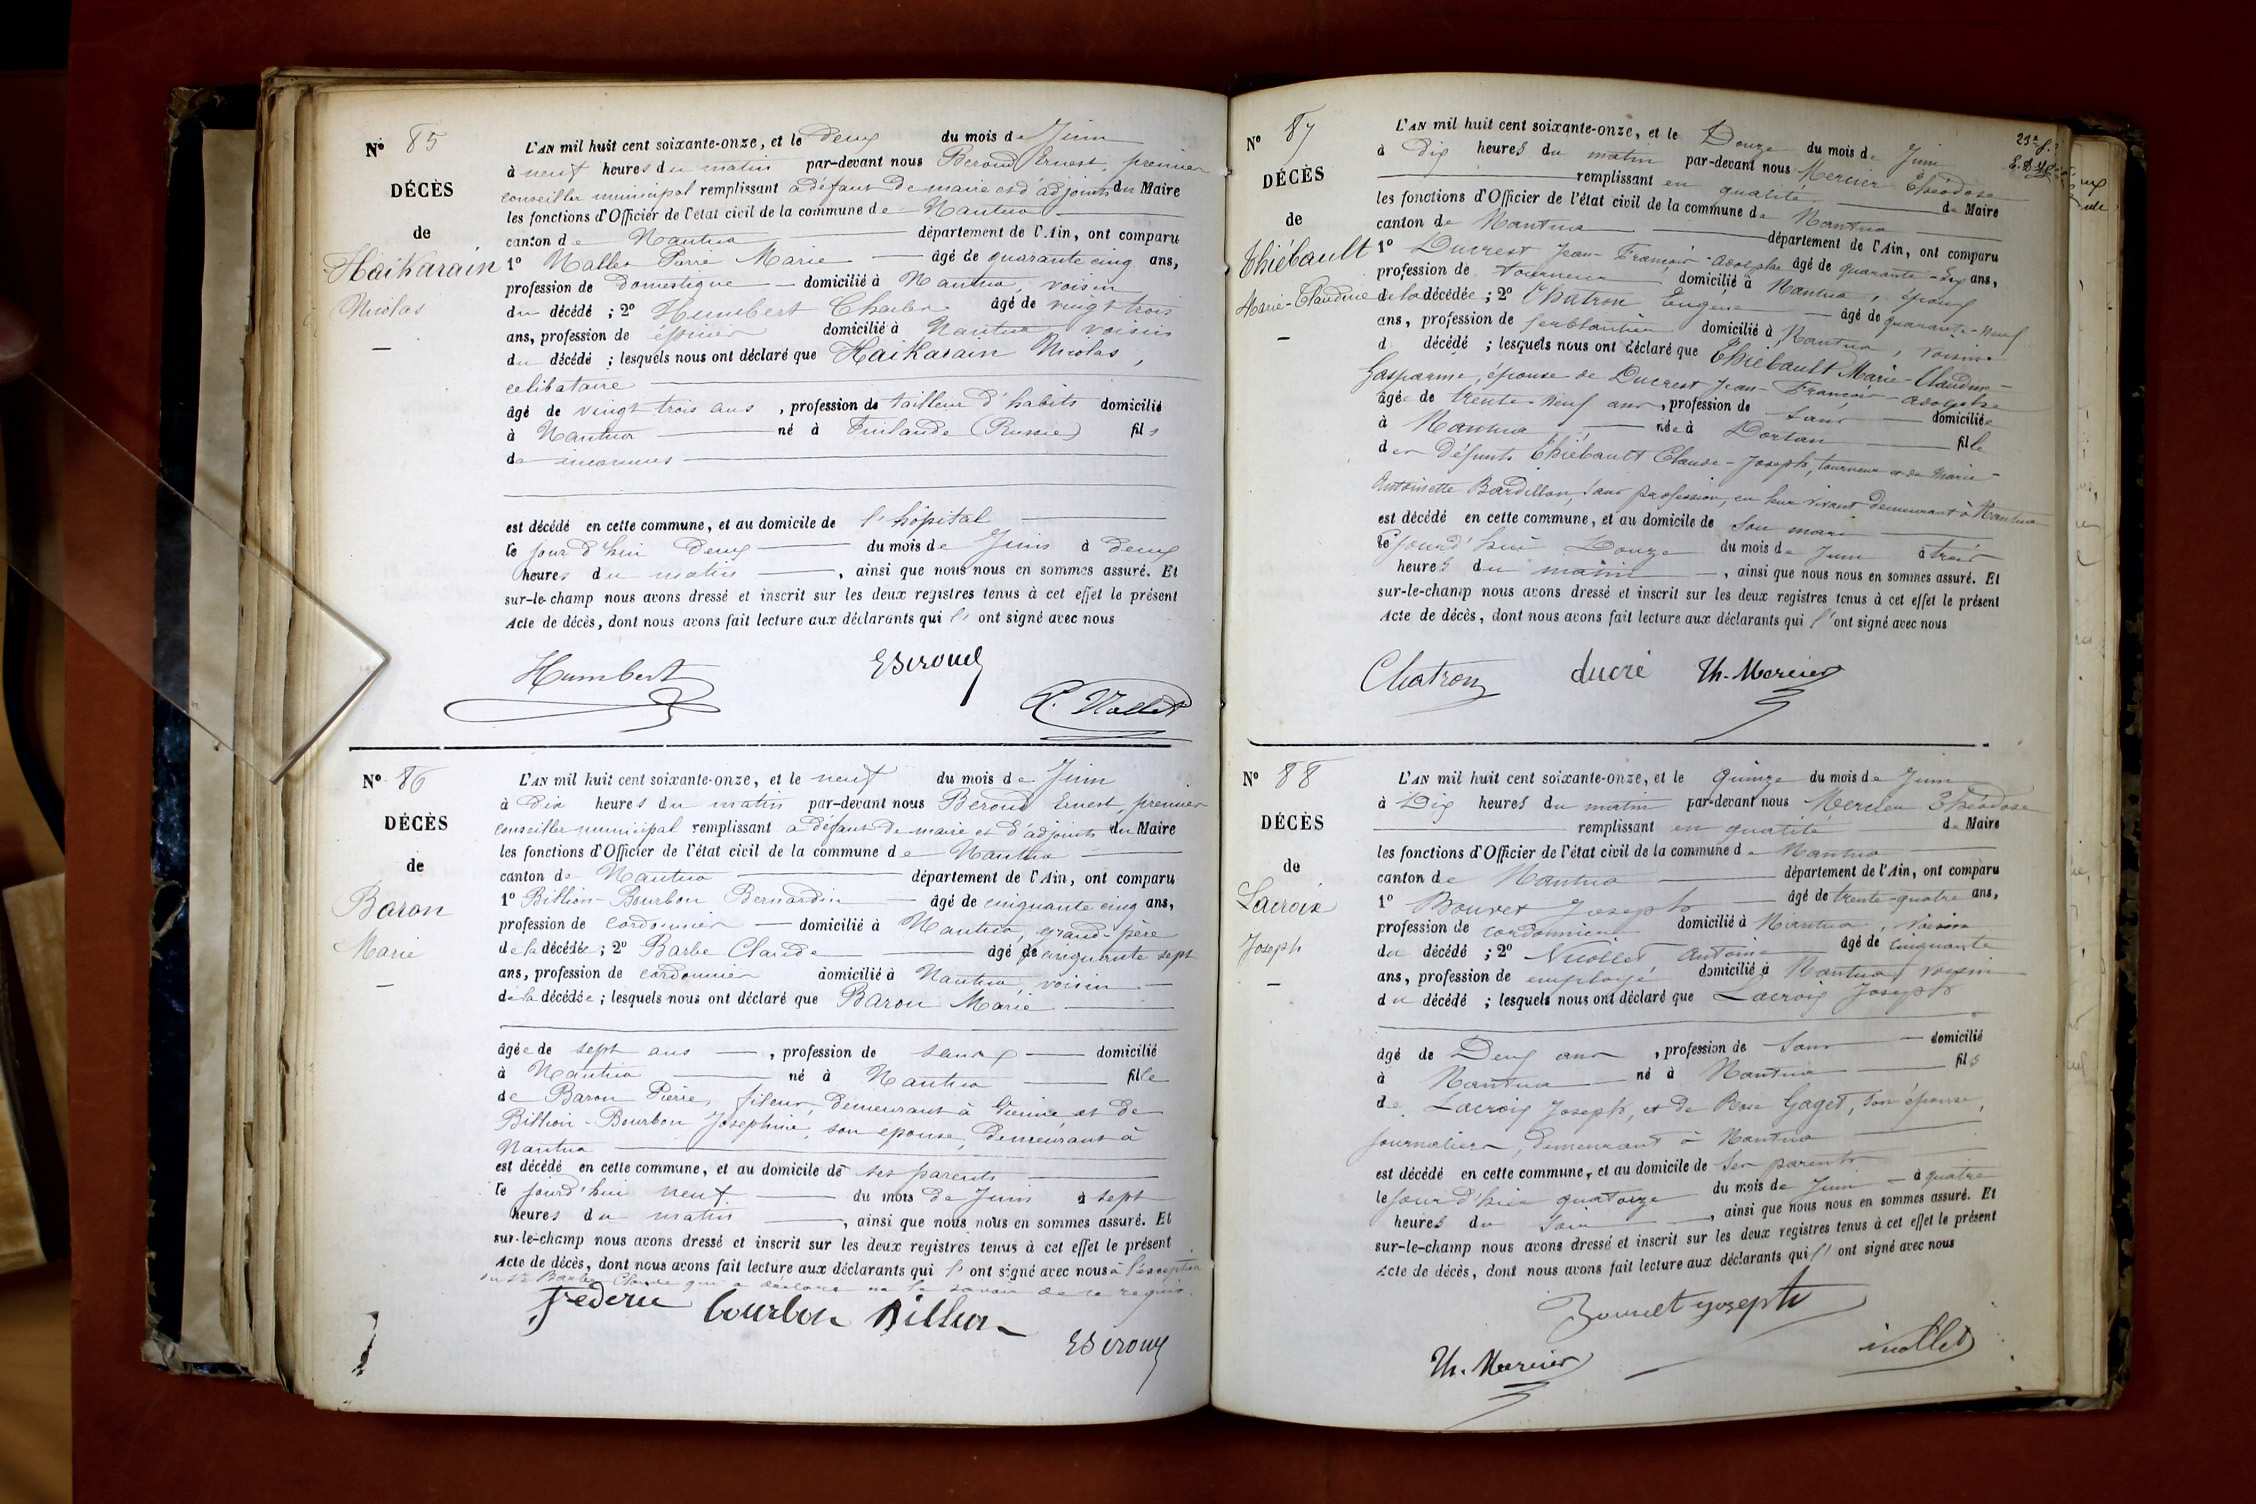 N° 85
DÉCÈS
de
Haikarain
Nicolas
L'AN mil huit cent soixante-onze, et le deux du mois de Juin
à neuf heures du matin par-devant nous Beroud Ernest, premier
conseiller municipal remplissant à défaut de maire et d'adjoints du Maire
les fonctions d'Officier de l'état civil de la commune de Nantua
canton de Nantua département de l'Ain, ont comparu
1° Nallet Pierre Marie âgé de quarante cinq ans,
profession de domestique domicilié à Nantua, voisin
du décédé ; 2° Humbert Charles âgé de vingt trois
ans, profession de épicier domicilié à Nantua voisin
du décédé ; lesquels nous ont déclaré que Haikarain Nicolas,
celibataire
âgé de vingt trois ans, profession de tailleur d'habits domicilié
à Nantua né à Finlande (Russie) fils
de inconnus
est décédé en cette commune, et au domicile de l'hôpital
le jourd'hui deux du mois de Juin à deux
heures du matin, ainsi que nous nous en sommes assuré. Et
sur-le-champ nous avons dressé et inscrit sur les deux registres tenus à cet effet le présent
Acte de décès, dont nous avons fait lecture aux déclarants qui l'ont signé avec nous
Humbert EBeroud P. Nallet
N° 86
DÉCÈS
de
Baron
Marie
L'AN mil huit cent soixante-onze, et le neuf du mois de Juin
à dix heures du matin par-devant nous Beroud Ernest, premier
conseiller municipal remplissant à défaut de maire et d'adjoints du Maire
les fonctions d'Officier de l'état civil de la commune de Nantua
canton de Nantua département de l'Ain, ont comparu
1° Billion-Bourbon Bernardin âgé de cinquante cinq ans,
profession de cordonnier domicilié à Nantua, grand-père
de la décédée ; 2° Barbe Claude âgé de cinquante sept
ans, profession de cordonnier domicilié à Nantua, voisin
de la décédée ; lesquels nous ont déclaré que Baron Marie
âgée de sept ans, profession de sans domicilié
à Nantua né à Nantua fille
de Baron Pierre, fileur, demeurant à Vienne et de
Billion-Bourbon Josephine, son epouse, demeurant à
Nantua
est décédé en cette commune, et au domicile de ses parents
le jourd'hui neuf du mois de Juin à sept
heures du matin, ainsi que nous nous en sommes assuré. Et
sur-le-champ nous avons dressé et inscrit sur les deux registres tenus à cet effet le présent
Acte de décès, dont nous avons fait lecture aux déclarants qui l'ont signé avec nous à l'exception
du Sr Barbe Claude qui a déclaré ne le savoir de ce requis.
bourbon Billion
EBeroud
N° 87
DÉCÈS
de
Thiébault
Marie-Claudine
L'AN mil huit cent soixante-onze, et le Douze du mois de Juin
à Dix heures du matin par-devant nous Mercier Théodose
remplissant en qualité de Maire
les fonctions d'Officier de l'état civil de la commune de Nantua
canton de Nantua département de l'Ain, ont comparu
1° Ducrest Jean-François-Adolphe âgé de quarante-six ans,
profession de tourneur domicilié à Nantua, époux
de la décédée ; 2° Chatron Eugène âgé de quarante-neuf
ans, profession de ferblantier domicilié à Nantua, voisin
d décédé ; lesquels nous ont déclaré que Thiébault Marie-Claudine-
Gasparine, épouse de Ducrest Jean-François-Adolphe
âgée de trente-neuf ans, profession de Sans domiciliée
à Nantua, née à Dortan fille
des défunts Thiébault Claude-Joseph, tourneur et de Marie-
Antoinette Bardillon, sans profession, en leur vivant demeurant à Nantua
est décédé en cette commune, et au domicile de Son mari
le jourd'hui Douze du mois de Juin à trois
heures du matin, ainsi que nous nous en sommes assuré. Et
sur-le-champ nous avons dressé et inscrit sur les deux registres tenus à cet effet le présent
Acte de décès, dont nous avons fait lecture aux déclarants qui l'ont signé avec nous
Chatron ducré Th. Mercier
N° 88
DÉCÈS
de
Lacroix
Joseph
L'AN mil huit cent soixante-onze, et le quinze du mois de Juin
à Dix heures du matin par-devant nous Mercier Théodose
remplissant en qualité de Maire
les fonctions d'Officier de l'état civil de la commune de Nantua
canton de Nantua département de l'Ain, ont comparu
1° Bouvet Joseph âgé de trente-quatre ans,
profession de cordonnier domicilié à Nantua, voisin
du décédé ; 2° Nicollet Antoine âgé de cinquante
ans, profession de employé domicilié à Nantua, voisin
du décédé ; lesquels nous ont déclaré que Lacroix Joseph
âgé de Deux ans, profession de Sans domicilié
à Nantua né à Nantua fils
de Lacroix Joseph, et de Rose Gaget, son épouse,
journaliers, demeurant à Nantua
est décédé en cette commune, et au domicile de Ses parents
le jour d'hier quatorze du mois de Juin à quatre
heures du Soir, ainsi que nous nous en sommes assuré. Et
sur-le-champ nous avons dressé et inscrit sur les deux registres tenus à cet effet le présent
Acte de décès, dont nous avons fait lecture aux déclarants qui l'ont signé avec nous
Bouvet joseph
Th. Mercier nicollet